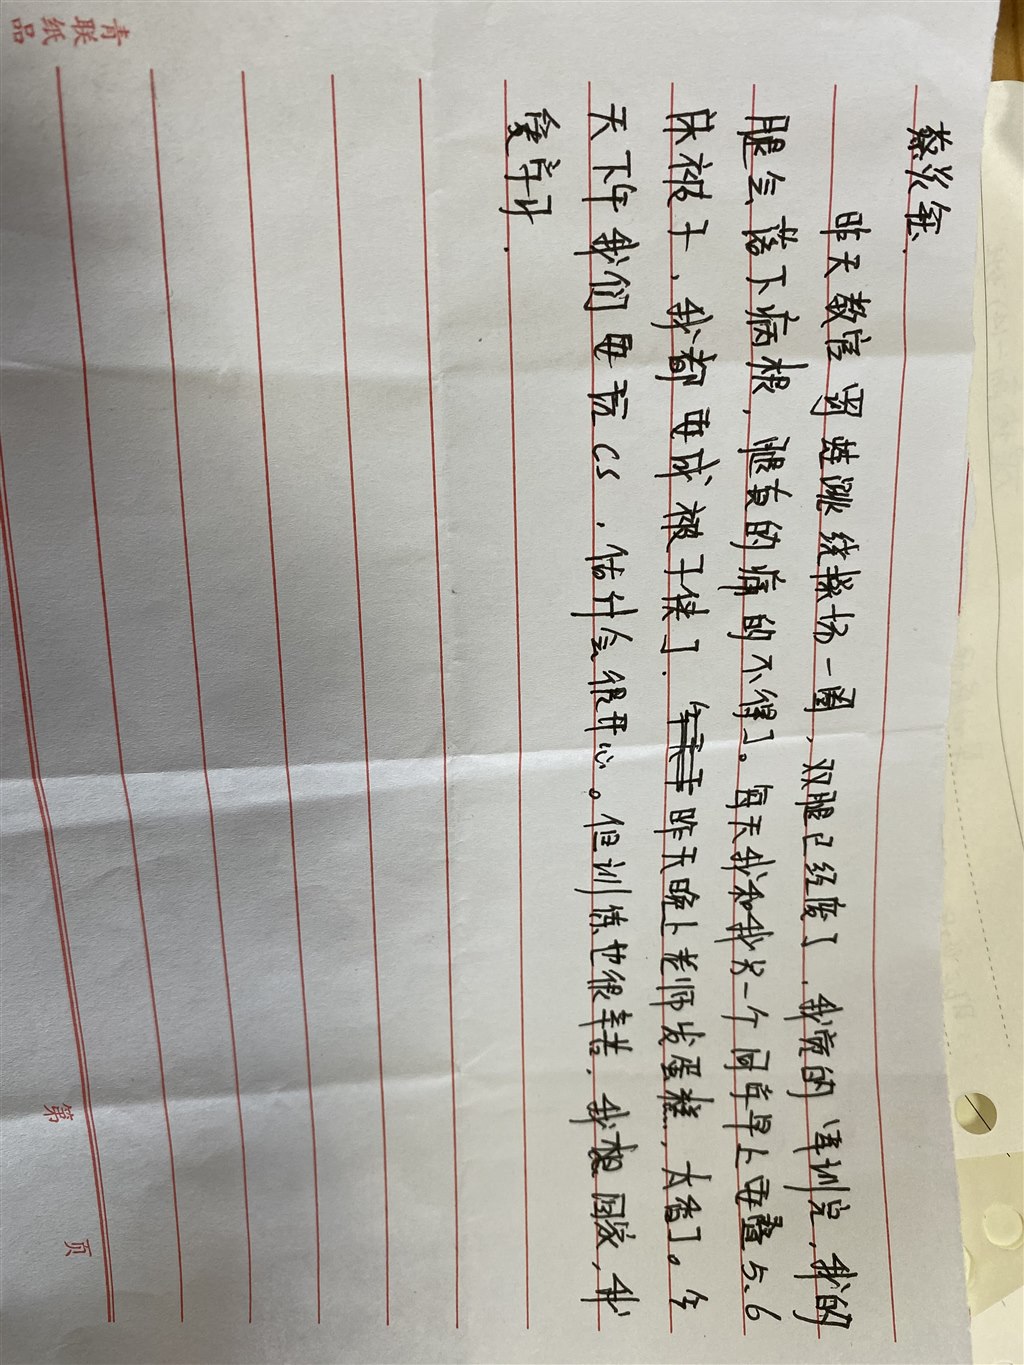 青联纸品
昨天教官罚蛙跳绕操场一圈，双腿已经废了，我觉的军训完，我的
腿会落下病根，腿真的痛的不得了。每天我和我另一个同学早上要叠5、6
床被子，我都要成被子侠了.昨天晚上老师发蛋糕，太香了。今
天下午我们要玩CS，估计会很开心。但训练也很辛苦，我想回家，我
爱学习.
第 页